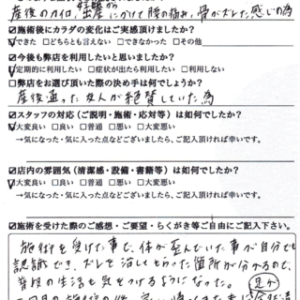 産後のケア、
にかけて腰の痛み、骨がズレた感じの為
☑施術後にカラダの変化はご実感頂けましたか?
できた □どちらとも言えない □できなかった □その他
☑今後も弊店を利用したいと思いましたか?
定期的に利用したい □症状が出たら利用したい □利用しない
☑弊店をお選び頂いた際の決め手は何でしょうか?
産後通った友人が絶賛していた為
☑スタッフの対応(ご説明・施術・応対等)は如何でしたか?
大変良い □良い □普通 □悪い □大変悪い
→気になった・気に入った点などございましたら、ご記入頂ければ幸いです。
☑店内の雰囲気(清潔感・設備・書籍等)は如何でしたか?
大変良い □良い □普通 □悪い □大変悪い
→気になった・気に入った点などございましたら、ご記入頂ければ幸いです。
☑施術を受けた際のご感想・ご要望・らくがき等ご自由にご記入下さい。
施術を受けた事で、体が歪んでいた事が自分でも
認識でき、ズレを治してもらった箇所が分かるので、
普段の生活も気をつけるようになった。